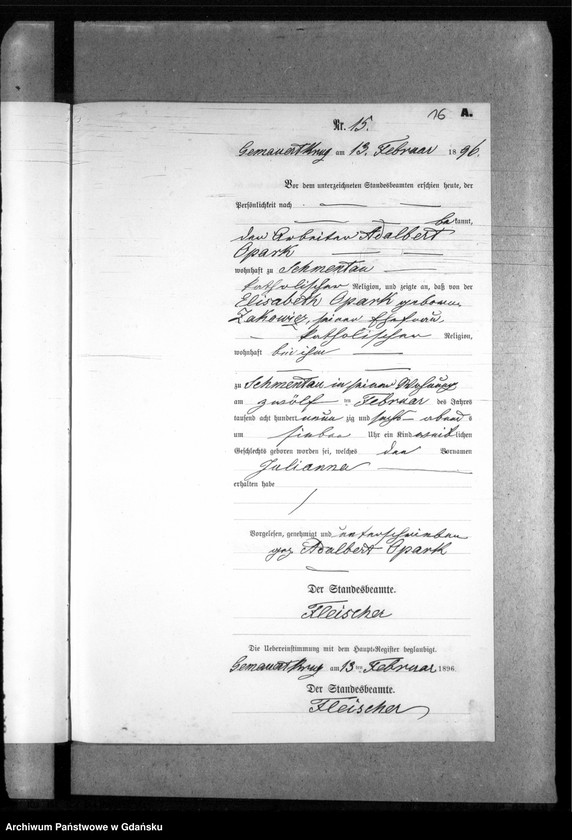 16 A.
Nr. 15.
Gemauert Krug am 13. Februar 1896.
Vor dem unterzeichneten Standesbeamten erschien heute, der
Persönlichkeit nach
bekannt,
den Arbeiter Adalbert
Opark
wohnhaft zu Schmentau
katholischer Religion, und zeigte an, daß von der
Elisabeth Opark geborene
Zakowicz, seiner Ehefrau,
katholischer Religion,
wohnhaft bei ihm
zu Schmentau in seiner Wohnung
am zwölf ten Februar des Jahres
tausend acht hundert neun zig und sechs abends
um sieben Uhr ein Kind weiblichen
Geschlechts geboren worden sei, welches den Vornamen
Julianna
erhalten habe
Vorgelesen, genehmigt und unterschrieben
gez Adalbert Opark
Der Standesbeamte.
Fleischer
Die Uebereinstimmung mit dem Haupt-Register beglaubigt.
Gemauert Krug am 13 ten Februar 1896.
Der Standesbeamte.
Fleischer
Archiwum Państwowe w Gdańsku